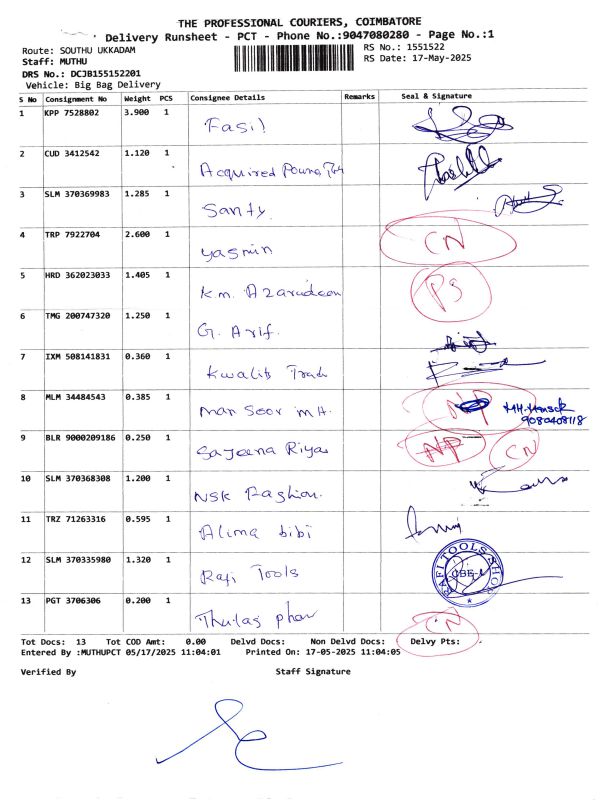 THE PROFESSIONAL COURIERS, COIMBATORE
Delivery Runsheet - PCT - Phone No.:9047080280 - Page No.:1
Route: SOUTHU UKKADAM RS No.: 1551522
Staff: MUTHU RS Date: 17-May-2025
DRS No.: DCJB155152201
Vehicle: Big Bag Delivery
S No Consignment No Weight PCS Consignee Details Remarks Seal & Signature
1 KPP 7528802 3.900 1 Fasil
2 CUD 3412542 1.120 1 Acquired
3 SLM 370369983 1.285 1 Santy
4 TRP 7922704 2.600 1 yasmin CN
5 HRD 362023033 1.405 1 K.m. Azarudeen PS
6 TMG 200747320 1.250 1 G. Arif.
7 IXM 508141831 0.360 1 Kwality Trad
8 MLM 34484543 0.385 1 Man Soor M.H. NP
9 BLR 9000209186 0.250 1 Sajeena Riyas NP CN
10 SLM 370368308 1.200 1 NSK Fashion.
11 TRZ 71263316 0.595 1 Alima bibi
12 SLM 370335980 1.320 1 Rafi Tools RAFI TOOLS SHOP
13 PGT 3706306 0.200 1 Thulas phar CN
Tot Docs: 13 Tot COD Amt: 0.00 Delvd Docs: Non Delvd Docs: Delvy Pts:
Entered By :MUTHUPCT 05/17/2025 11:04:01 Printed On: 17-05-2025 11:04:05
Verified By Staff Signature